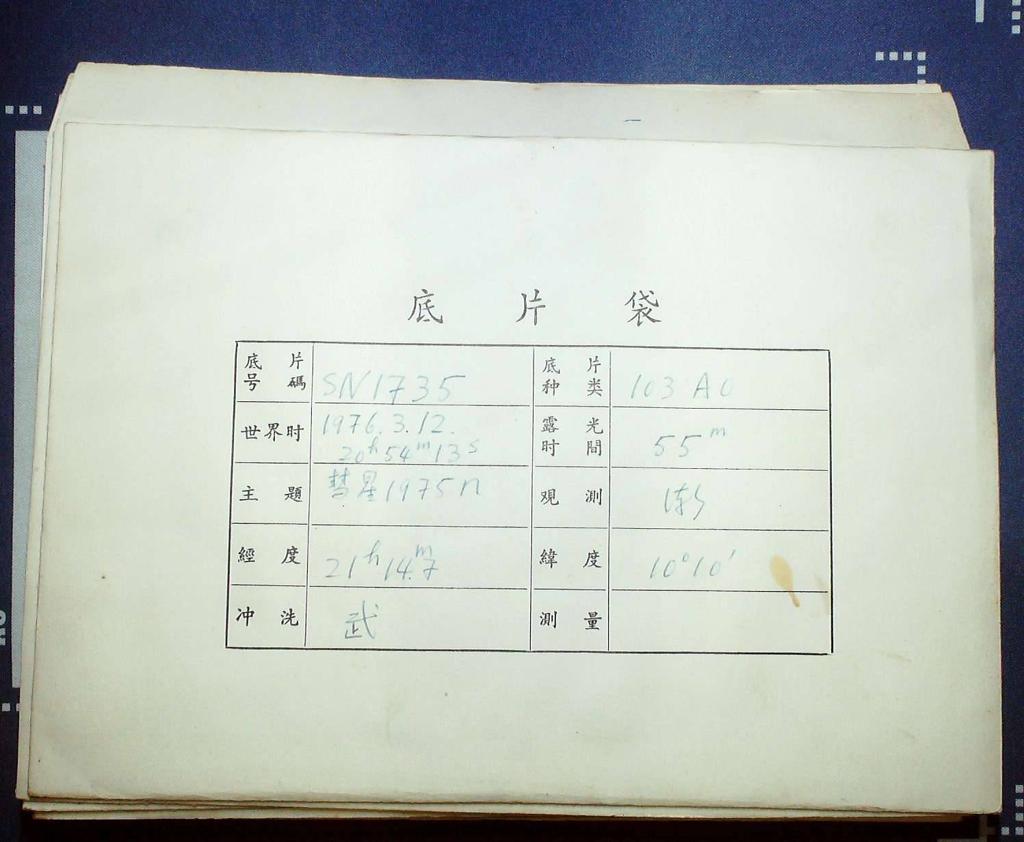 底片袋
底片号碼 SN1735 底片种类 103 AO
世界时 1976.3.12. 20h54m13s 露光时間 55m
主題 彗星1975n 观測
經度 21h14m.7 緯度 10°10'
冲洗 武 測量